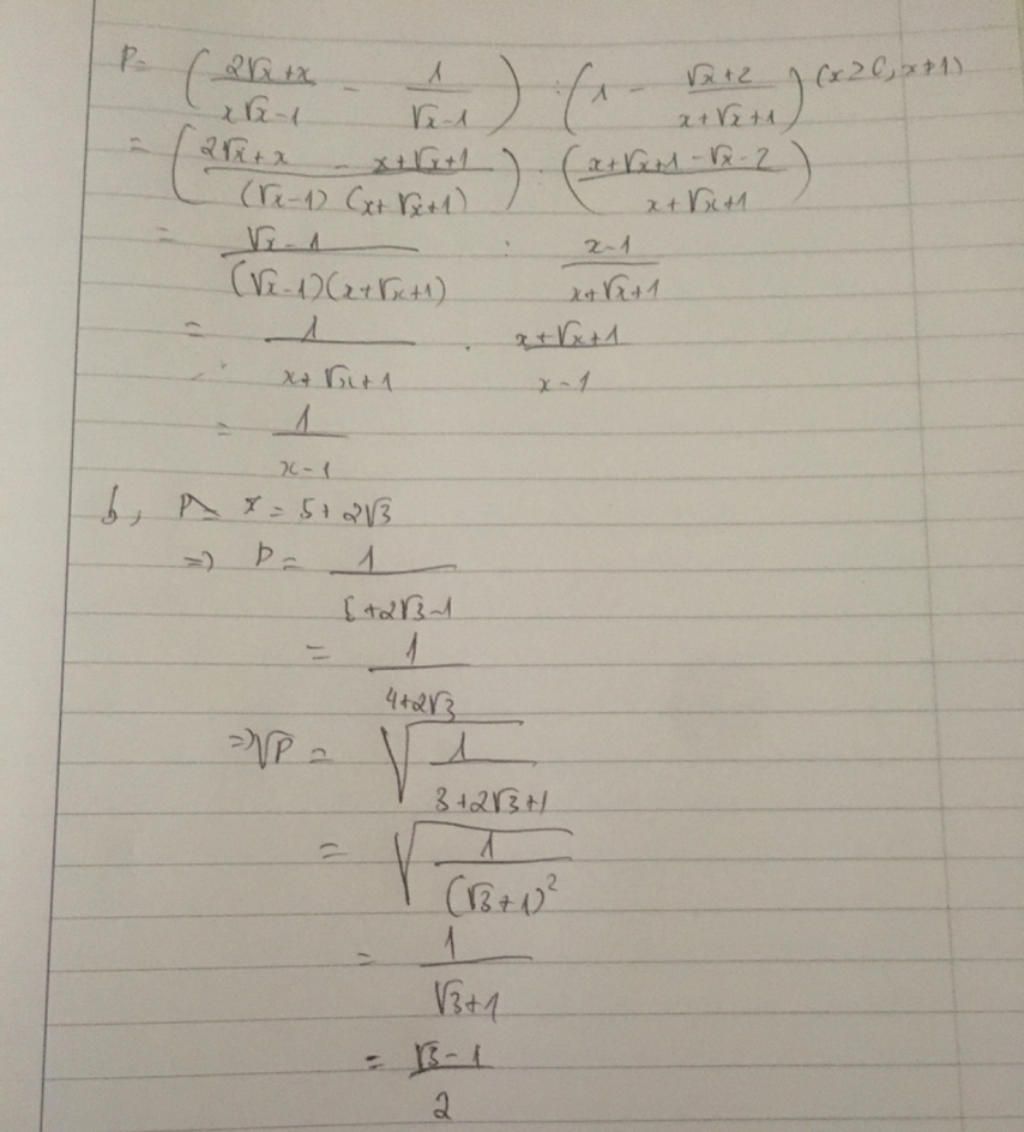 P = ( (2√x + x)/(x√x - 1) - 1/(√x - 1) ) : ( 1 - (√x + 2)/(x + √x + 1) ) (x ≥ 0, x ≠ 1)
= ( (2√x + x - x + √x + 1)/((√x - 1)(x + √x + 1)) ) : ( (x + √x + 1 - √x - 2)/(x + √x + 1) )
= (√x - 1)/((√x - 1)(x + √x + 1)) : (x - 1)/(x + √x + 1)
= 1/(x + √x + 1) . (x + √x + 1)/(x - 1)
= 1/(x - 1)
b, x = 5 + 2√3
=> P = 1/(5 + 2√3 - 1)
= 1/(4 + 2√3)
=> √P = √(1/(3 + 2√3 + 1))
= √(1/(√3 + 1)²)
= 1/(√3 + 1)
= (√3 - 1)/2